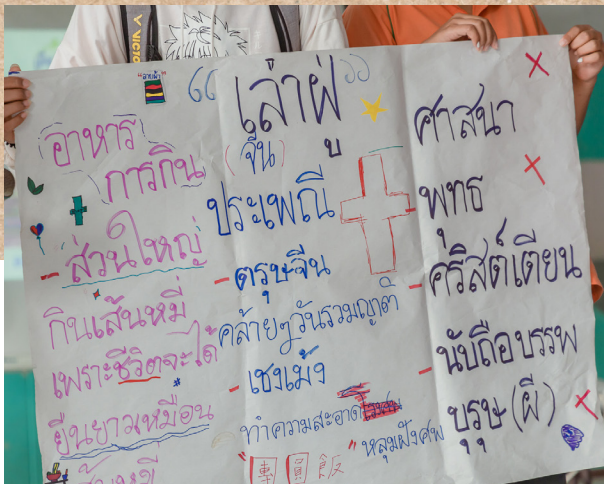 "ลายผ้า"
"เล่าฝู่"
(จีน)
อาหาร
การกิน
- ส่วนใหญ่
กินเส้นหมี่
เพราะชีวิตจะได้
ยืนยาวเหมือน
เส้นหมี่
ประเพณี
- ตรุษจีน
คล้ายๆวันรวมญาติ
- เชงเม้ง
ทำความสะอาด
หลุมฝังศพ
"團圓飯"
ศาสนา
- พุทธ
- คริสต์เตียน
- นับถือบรรพ
บุรุษ (ผี)